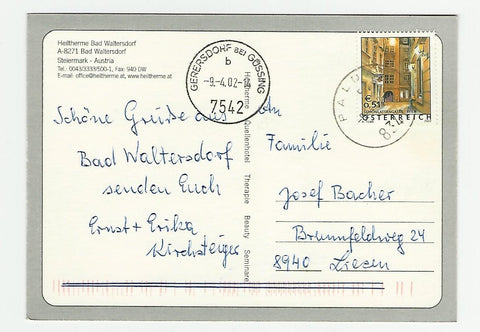 Heiltherme Bad Waltersdorf
A-8271 Bad Waltersdorf
Steiermark - Austria
Tel.: 0043/3333/500-1, Fax: 940 DW
E-mail: office@heiltherme.at, www.heiltherme.at
GERERSDORF BEI GÜSSING
b
-9.-4.02-
7542
PALD
834
€ 0,51
ÖSTERREICH
Schöne Grüße aus
Bad Waltersdorf
senden Euch
Ernst + Erika
Kirchsteiger
Heiltherme Quellenhotel Therapie Beauty Seminare
An
Familie
Josef Bacher
Brunnfeldweg 24
8940 Liezen